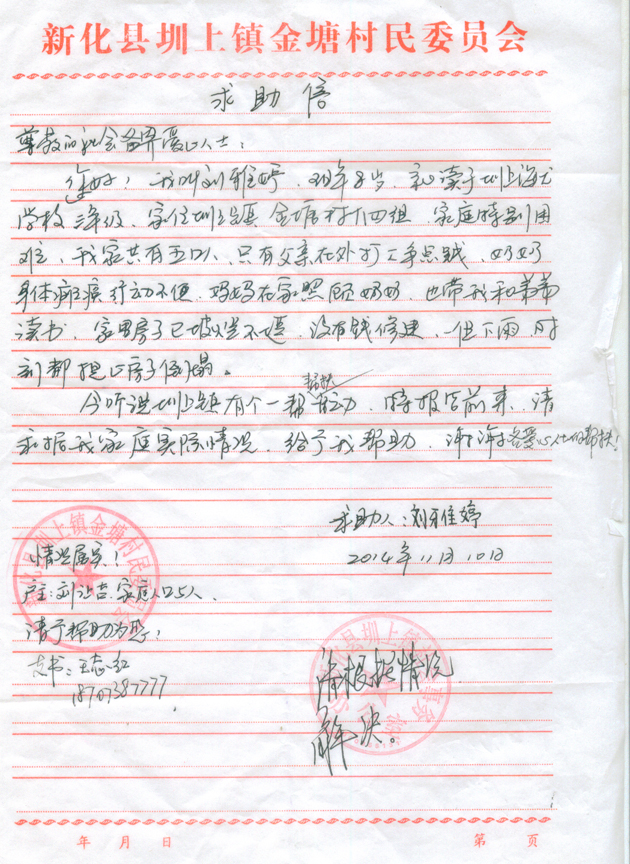 新化县圳上镇金塘村民委员会
求助信
尊敬的社会各界爱心人士：
您好！我叫刘雅婷，现年8岁，就读于圳上海龙
学校 年级，家住圳上镇金塘村十四组，家庭特别困
难，我家共有五口人，只有父亲在外打工争点钱，奶奶
身体 行动不便，妈妈在家照顾奶奶，也带我和弟弟
读书，家里房子已破烂不堪，没有钱修建，一但下雨时
刻都担心房子倒塌。
今听说圳上镇有个一帮一活动，特报名前来，请
求据我家庭实际情况，给予我帮助，谢谢各爱心人士的帮扶！
求助人：刘雅婷
2014年11月10日
情况属实！
户主：刘 吉，家庭人口5人。
请予帮助为感！
支书：王志红
18707387777
请根据情况
解决。
年 月 日
第 页